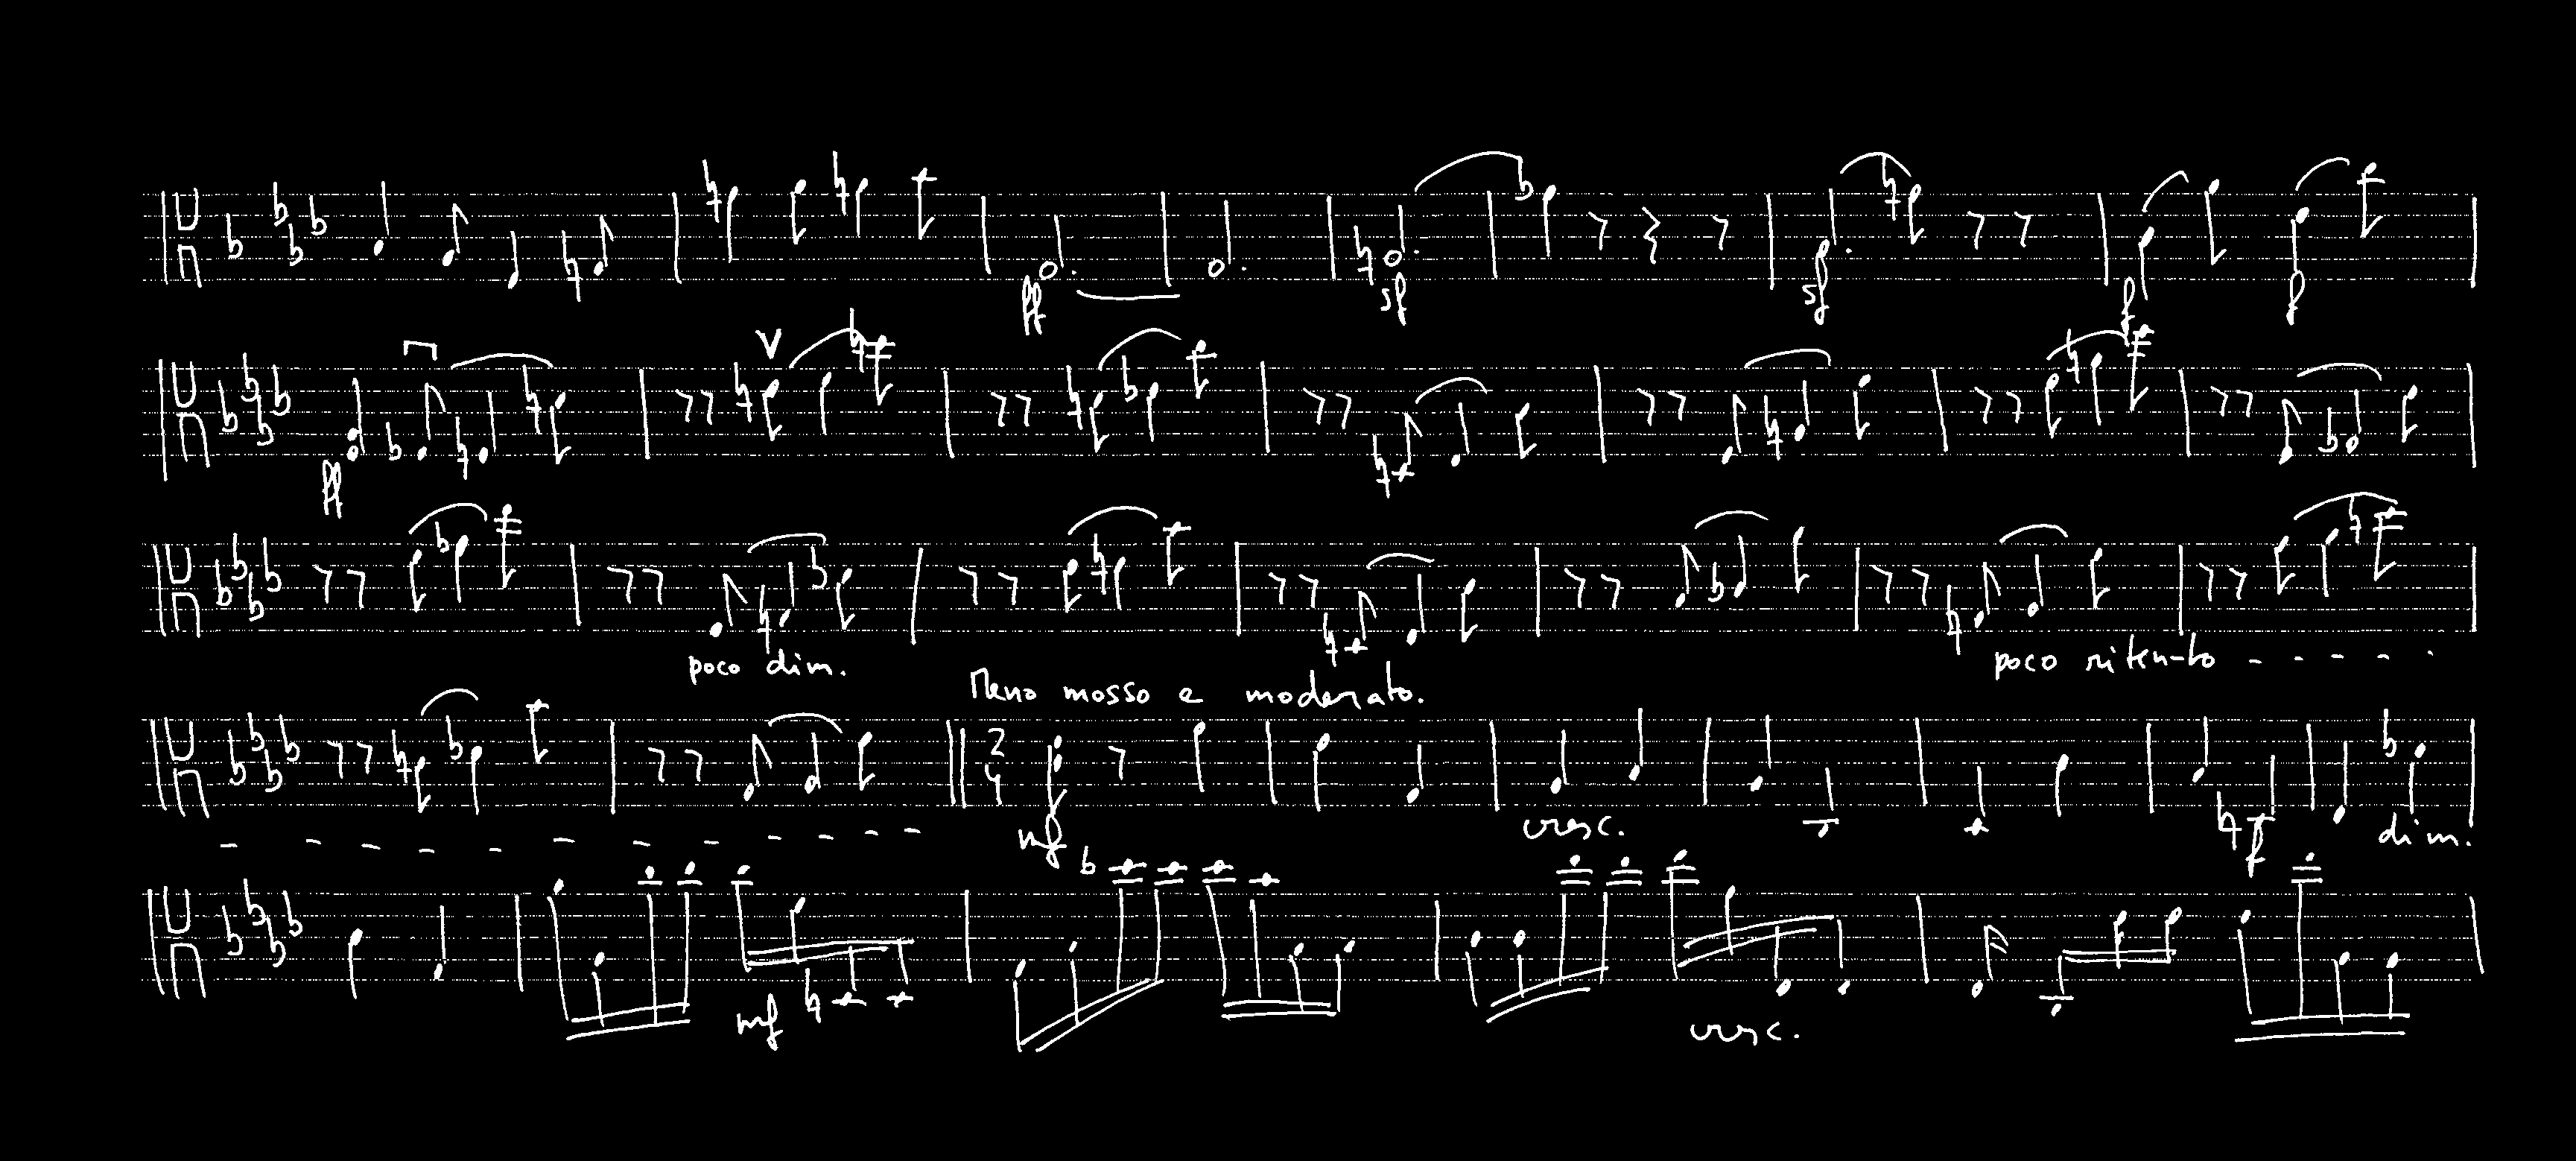 ff sf sf f f
ff
poco dim. poco ritenuto - - - - -
Meno mosso e moderato.
2
4
mf cresc. f dim.
mf cresc.